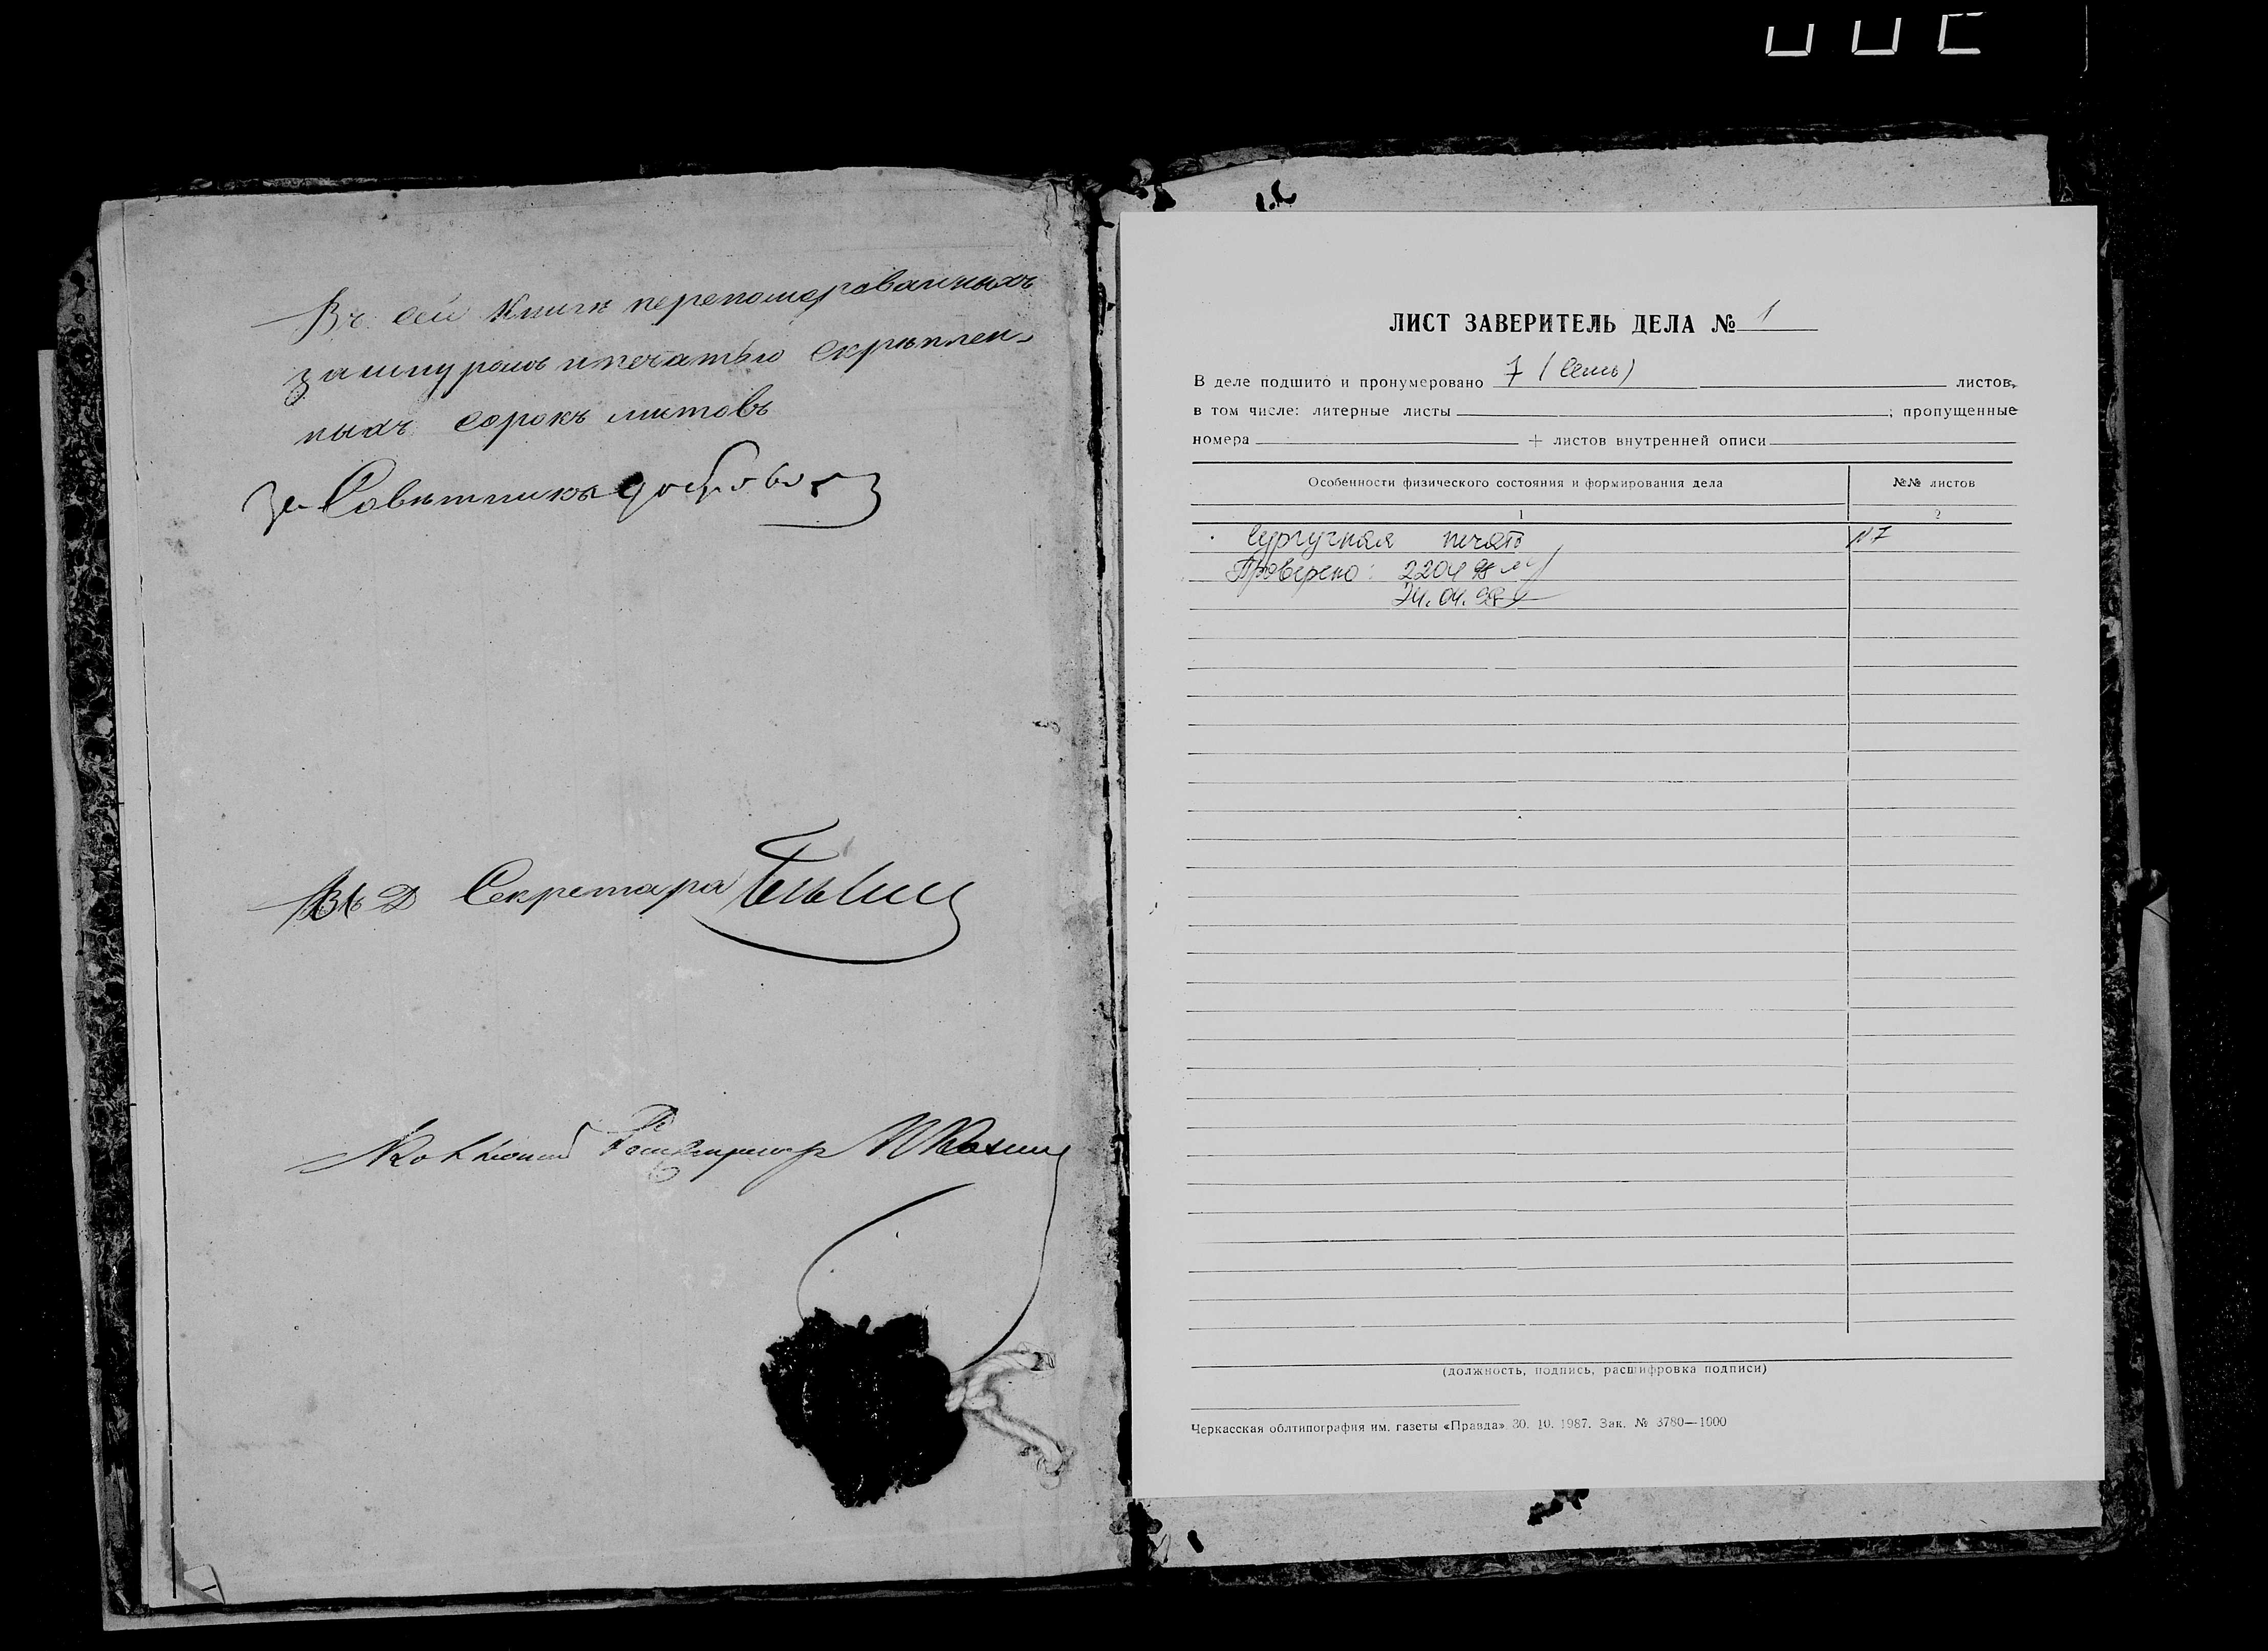 Въ сей книгѣ перепомерованныхъ
зашнуромъ ипечатью скрѣплен-
ныхъ сорокъ листовъ
За Совѣтника
Секретаря
ЛИСТ ЗАВЕРИТЕЛЬ ДЕЛА № 1
В деле подшито и пронумеровано 7 (семь) листов,
в том числе: литерные листы ; пропущенные
номера + листов внутренней описи
Особенности физического состояния и формирования дела №№ листов
1 2
Сургучная печать №7
Проверено: 2204 98
24.04.98
(должность, подпись, расшифровка подписи)
Черкасская облтипография им. газеты «Правда» 30. 10. 1987. Зак. № 3780—1000